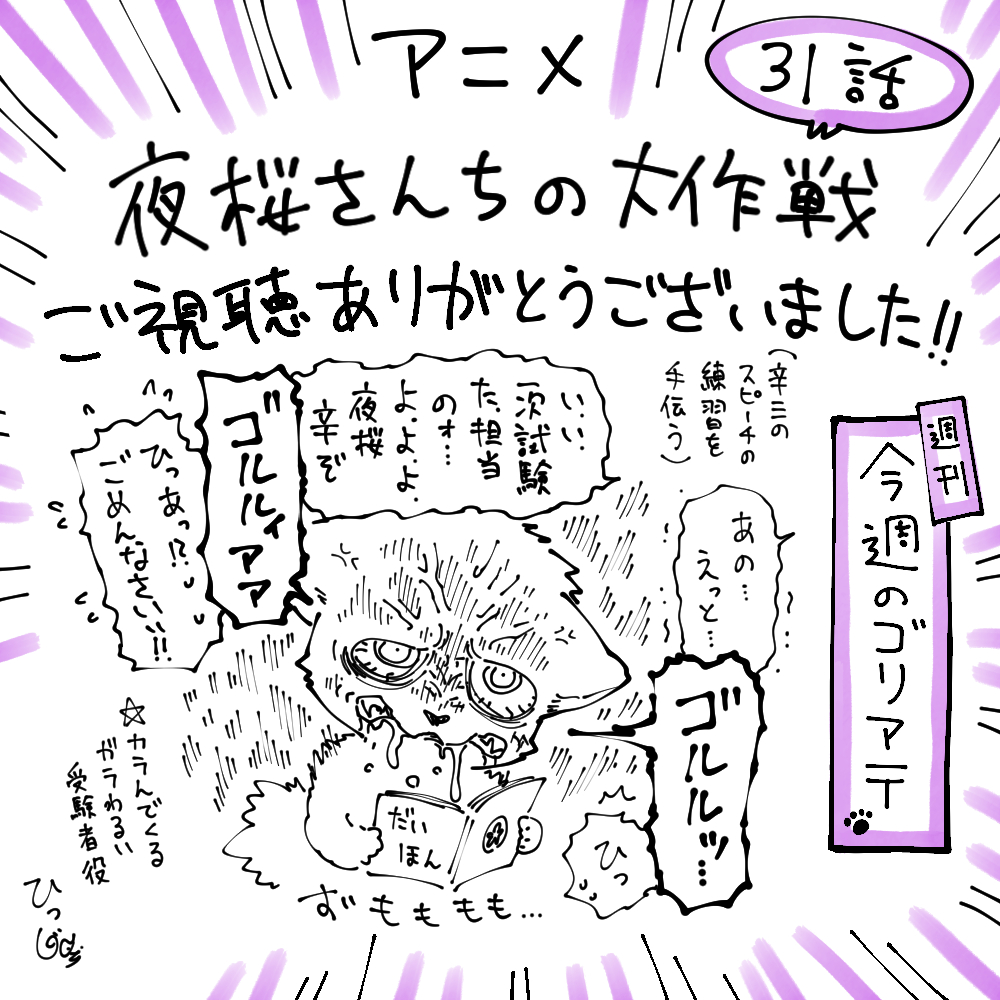 アニメ
31話
夜桜さんちの大作戦
ご視聴ありがとうございました!!
週刊
今週のゴリアテ
(辛三の
スピーチの
練習を
手伝う)
あの…
えっと…
ゴルルッ…
ひっ
い、い、
一次試験
た、担当
のォ…
よ、よ、よ、
夜桜
辛ぞ
ゴルルィアア
ひっあっ!?
ごめんなさいい!!
だい
ほん
ずももももも…
☆カラんでくる
ガラわるい
受験者役
ひっ